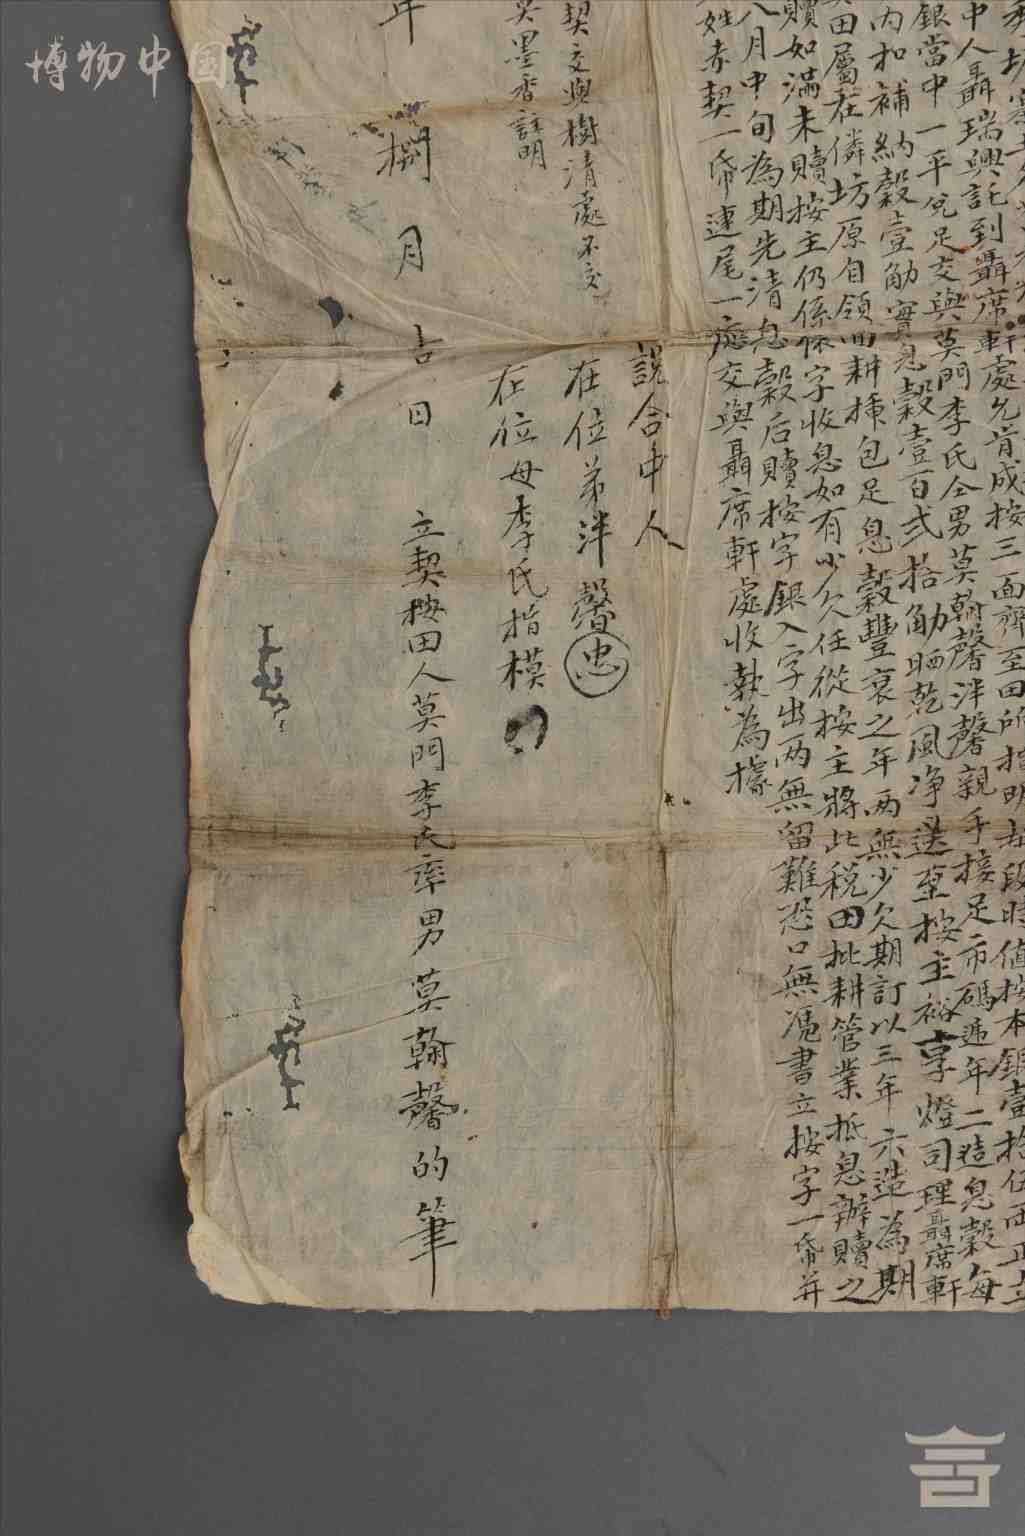 中人聶瑞興託到聶席軒處允肯成按三面齊至田所指明右段時值按本銀壹拾伍両正立
銀當中一平兌足交與莫門李氏仝男莫翰馨泮馨親手接足市碼遞年二造息穀每
內扣補納穀壹觔實息穀壹百弍拾觔晒乾風净送至按主裕享燈司理聶席軒
田屬在僯坊原自領田耕插包足息穀豐衰之年両無少欠期訂以三年六造為期
贖如滿未贖按主仍係依字收息如有少欠任從按主將此稅田批耕管業抵息辦贖之
八月中旬為期先清息穀后贖按字銀入字出両無留難恐口無憑書立按字一帋并
姓赤契一帋連尾一處交與聶席軒處收執為據
說合中人
契交與樹清處不交
在位弟泮馨 忠
墨香註明
在位母李氏指模
年 捌 月 吉 日 立契按田人莫門李氏率男莫翰馨的筆
博物中国